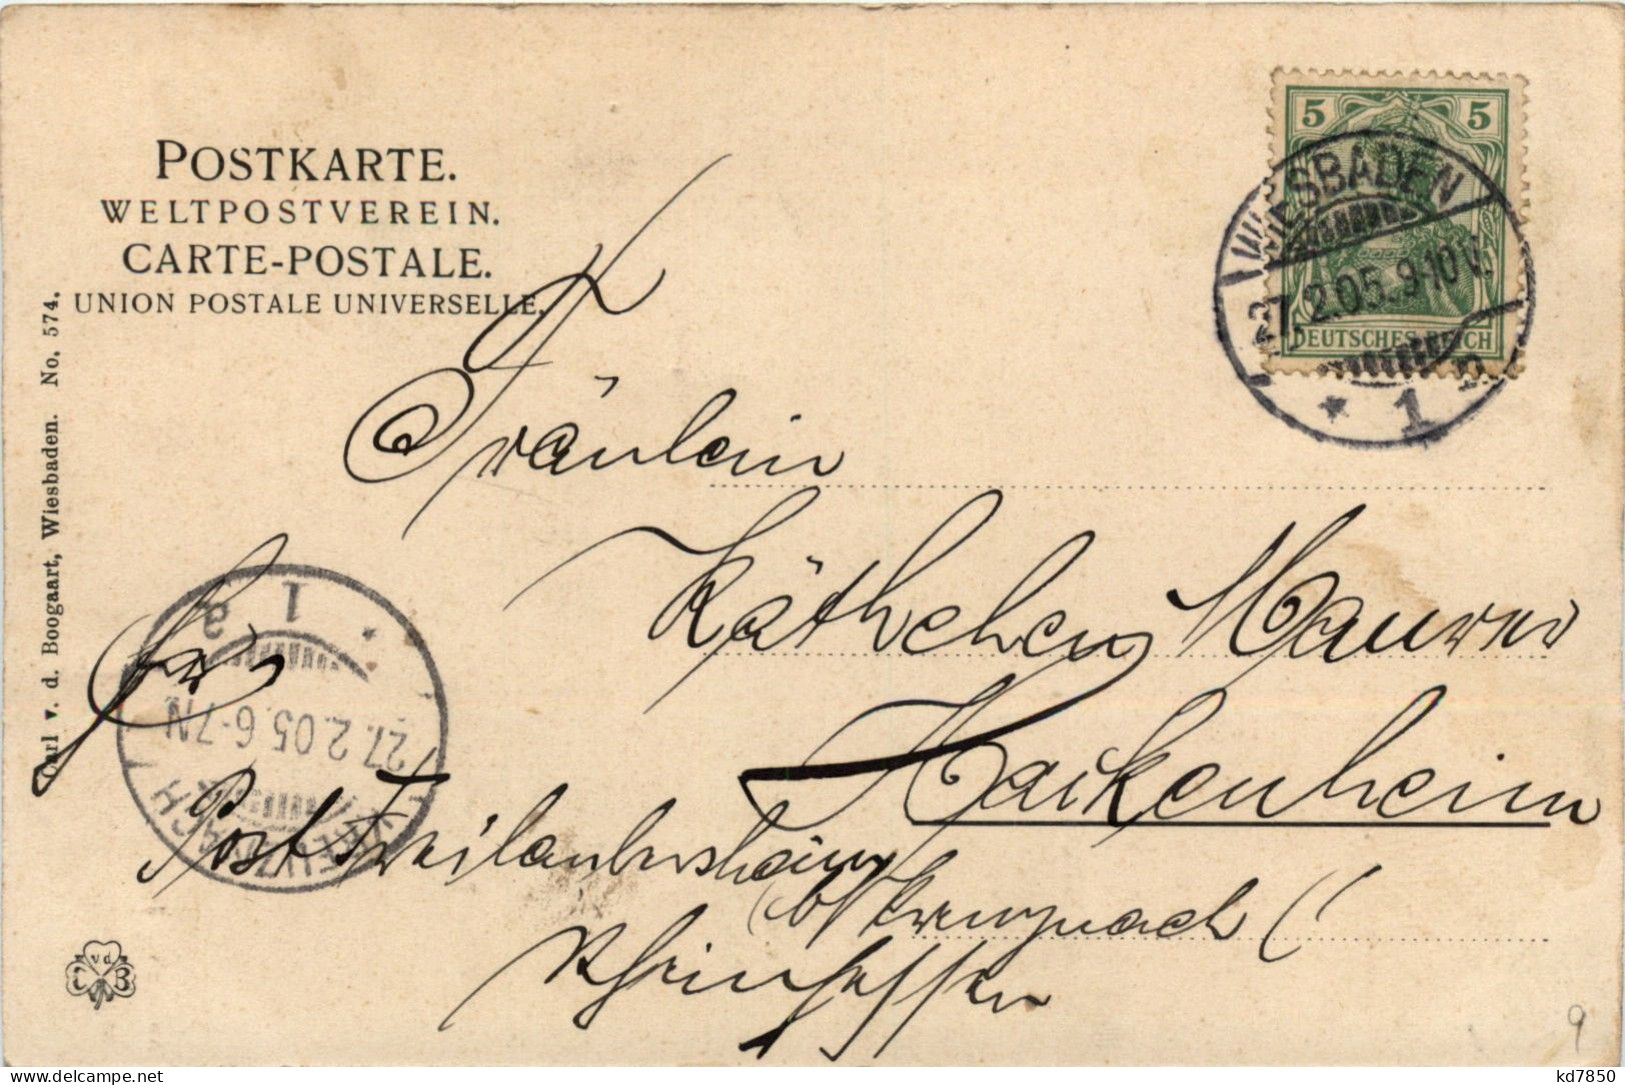 POSTKARTE.
WELTPOSTVEREIN.
CARTE-POSTALE.
UNION POSTALE UNIVERSELLE.
5 5
DEUTSCHES REICH
WIESBADEN
27.2.05.9-10V.
* 1
Fräulein
Käthchen Maurer
Hackenheim
Post
b/ Kreuznach (
Rheinhessen
1 a
27.2.05.6-7N
KREUZNACH
Carl v. d. Boogaart, Wiesbaden. No. 574.
C vd B
9
kd7850